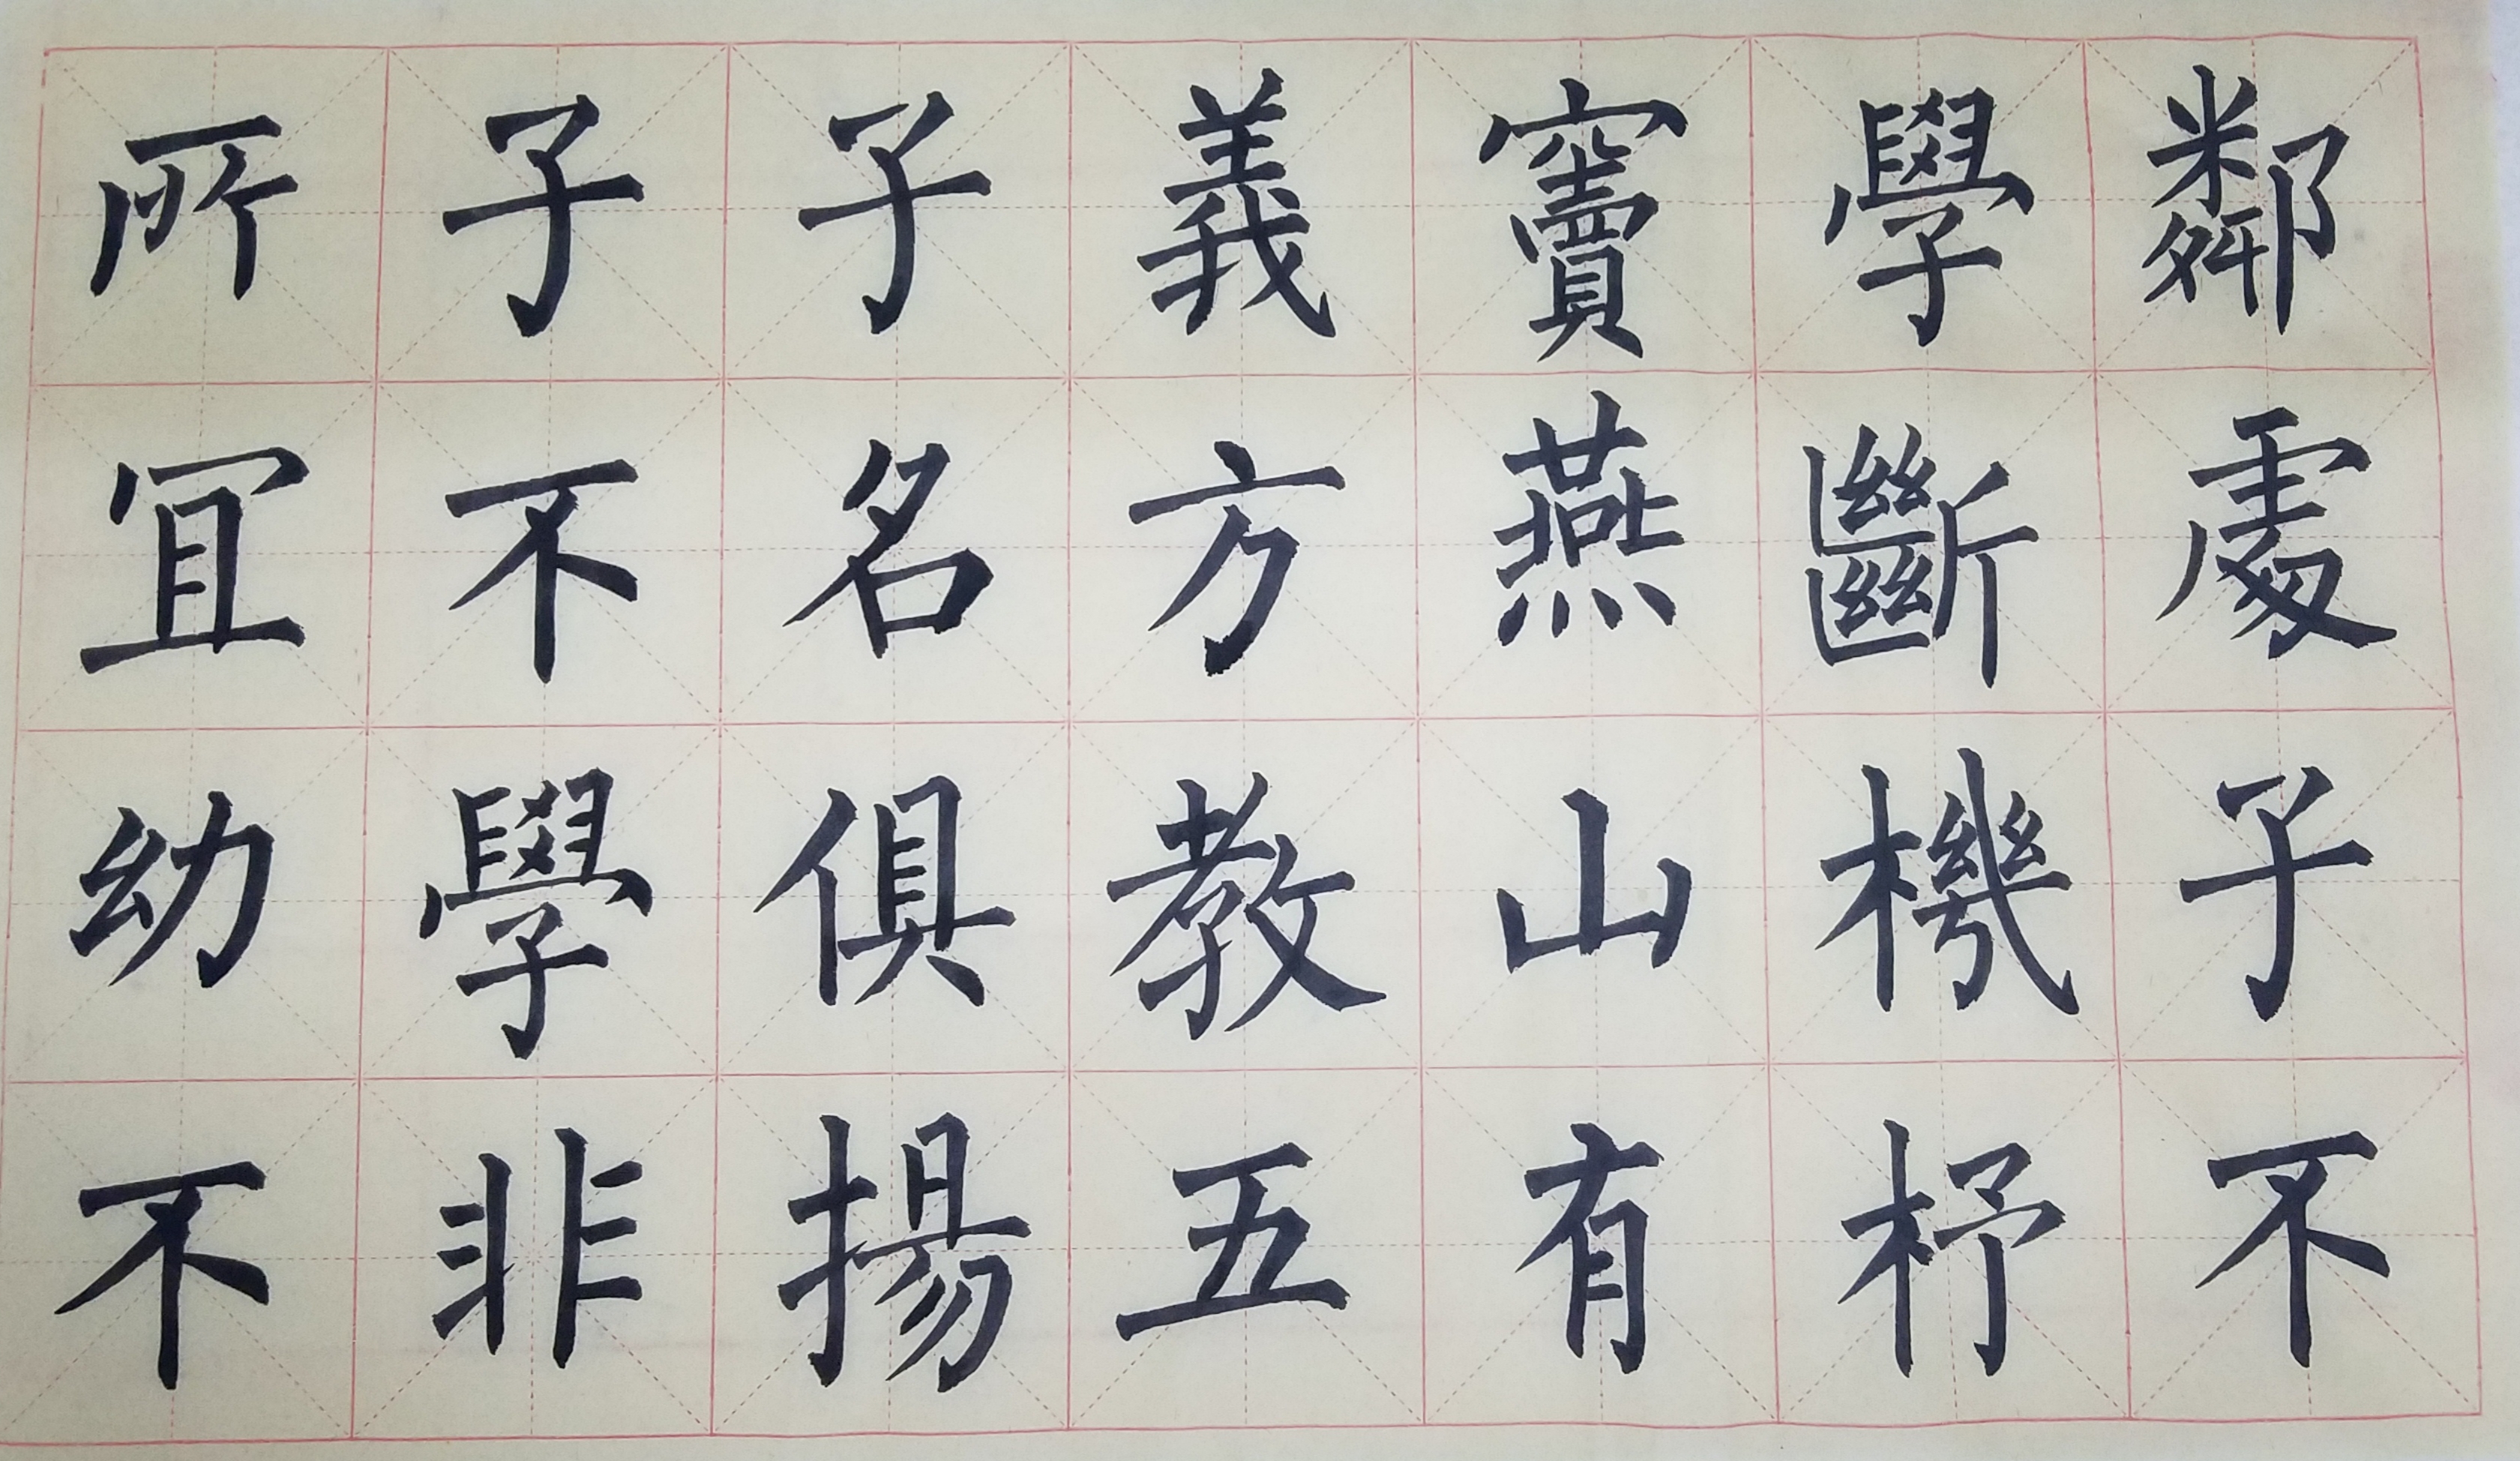 鄰處子不
學斷機杼
竇燕山有
義方教五
子名俱揚
子不學非
所宜幼不